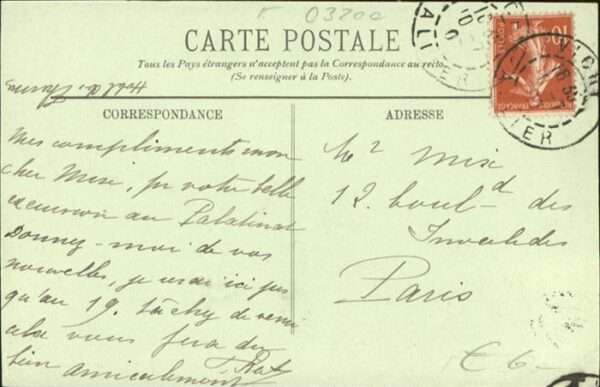 F 03200
CARTE POSTALE
Tous les Pays étrangers n'acceptent pas la Correspondance au recto
(Se renseigner à la Poste).
CORRESPONDANCE
ADRESSE
Mes compliments mon
cher Mixe, pr votre belle
excursion au Palatinat
Donnez-moi de vos
nouvelles, je suis ici jus
qu'au 19. tâchez de venir
cela vous fera du
bien amicalement
Mr Mixe
12. boul-d des
Invalides
Paris
VICHY
ALLIER
10
€ 6-